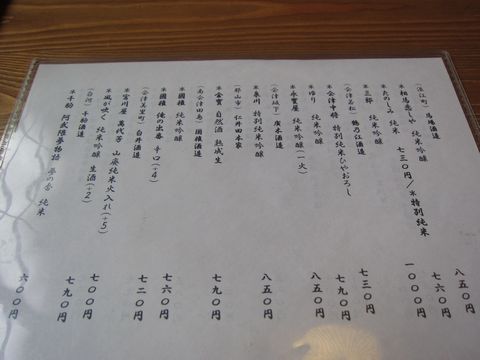 （浪江町） 馬場酒造
＊相馬恋しや 純米吟醸 八五〇円
＊たのしみ 純米 七三〇円／＊特別純米 七六〇円
＊三郎 純米吟醸 一〇〇〇円
（会津若松） 鶴乃江酒造
＊会津中将 特別純米ひやおろし 七三〇円
＊ゆり 純米吟醸 七九〇円
＊永寳屋 純米吟醸（一火） 八五〇円
（会津坂下） 廣木酒造
＊泉川 特別純米吟醸 八五〇円
（郡山市） 仁井田本家
＊金寳 自然酒 熟成生 七九〇円
（南会津田島） 國権酒造
＊國権 純米吟醸 七六〇円
＊國権 俺の出番 辛口（＋4） 七二〇円
（会津美里町） 白井酒造
＊宮川屋 萬代芳 山廃純米火入れ（＋5） 七〇〇円
＊風が吹く 純米吟醸 生酒（＋2） 七九〇円
（白河） 千駒酒造
＊千駒 阿武隈夢物語 夢の香 純米 六〇〇円